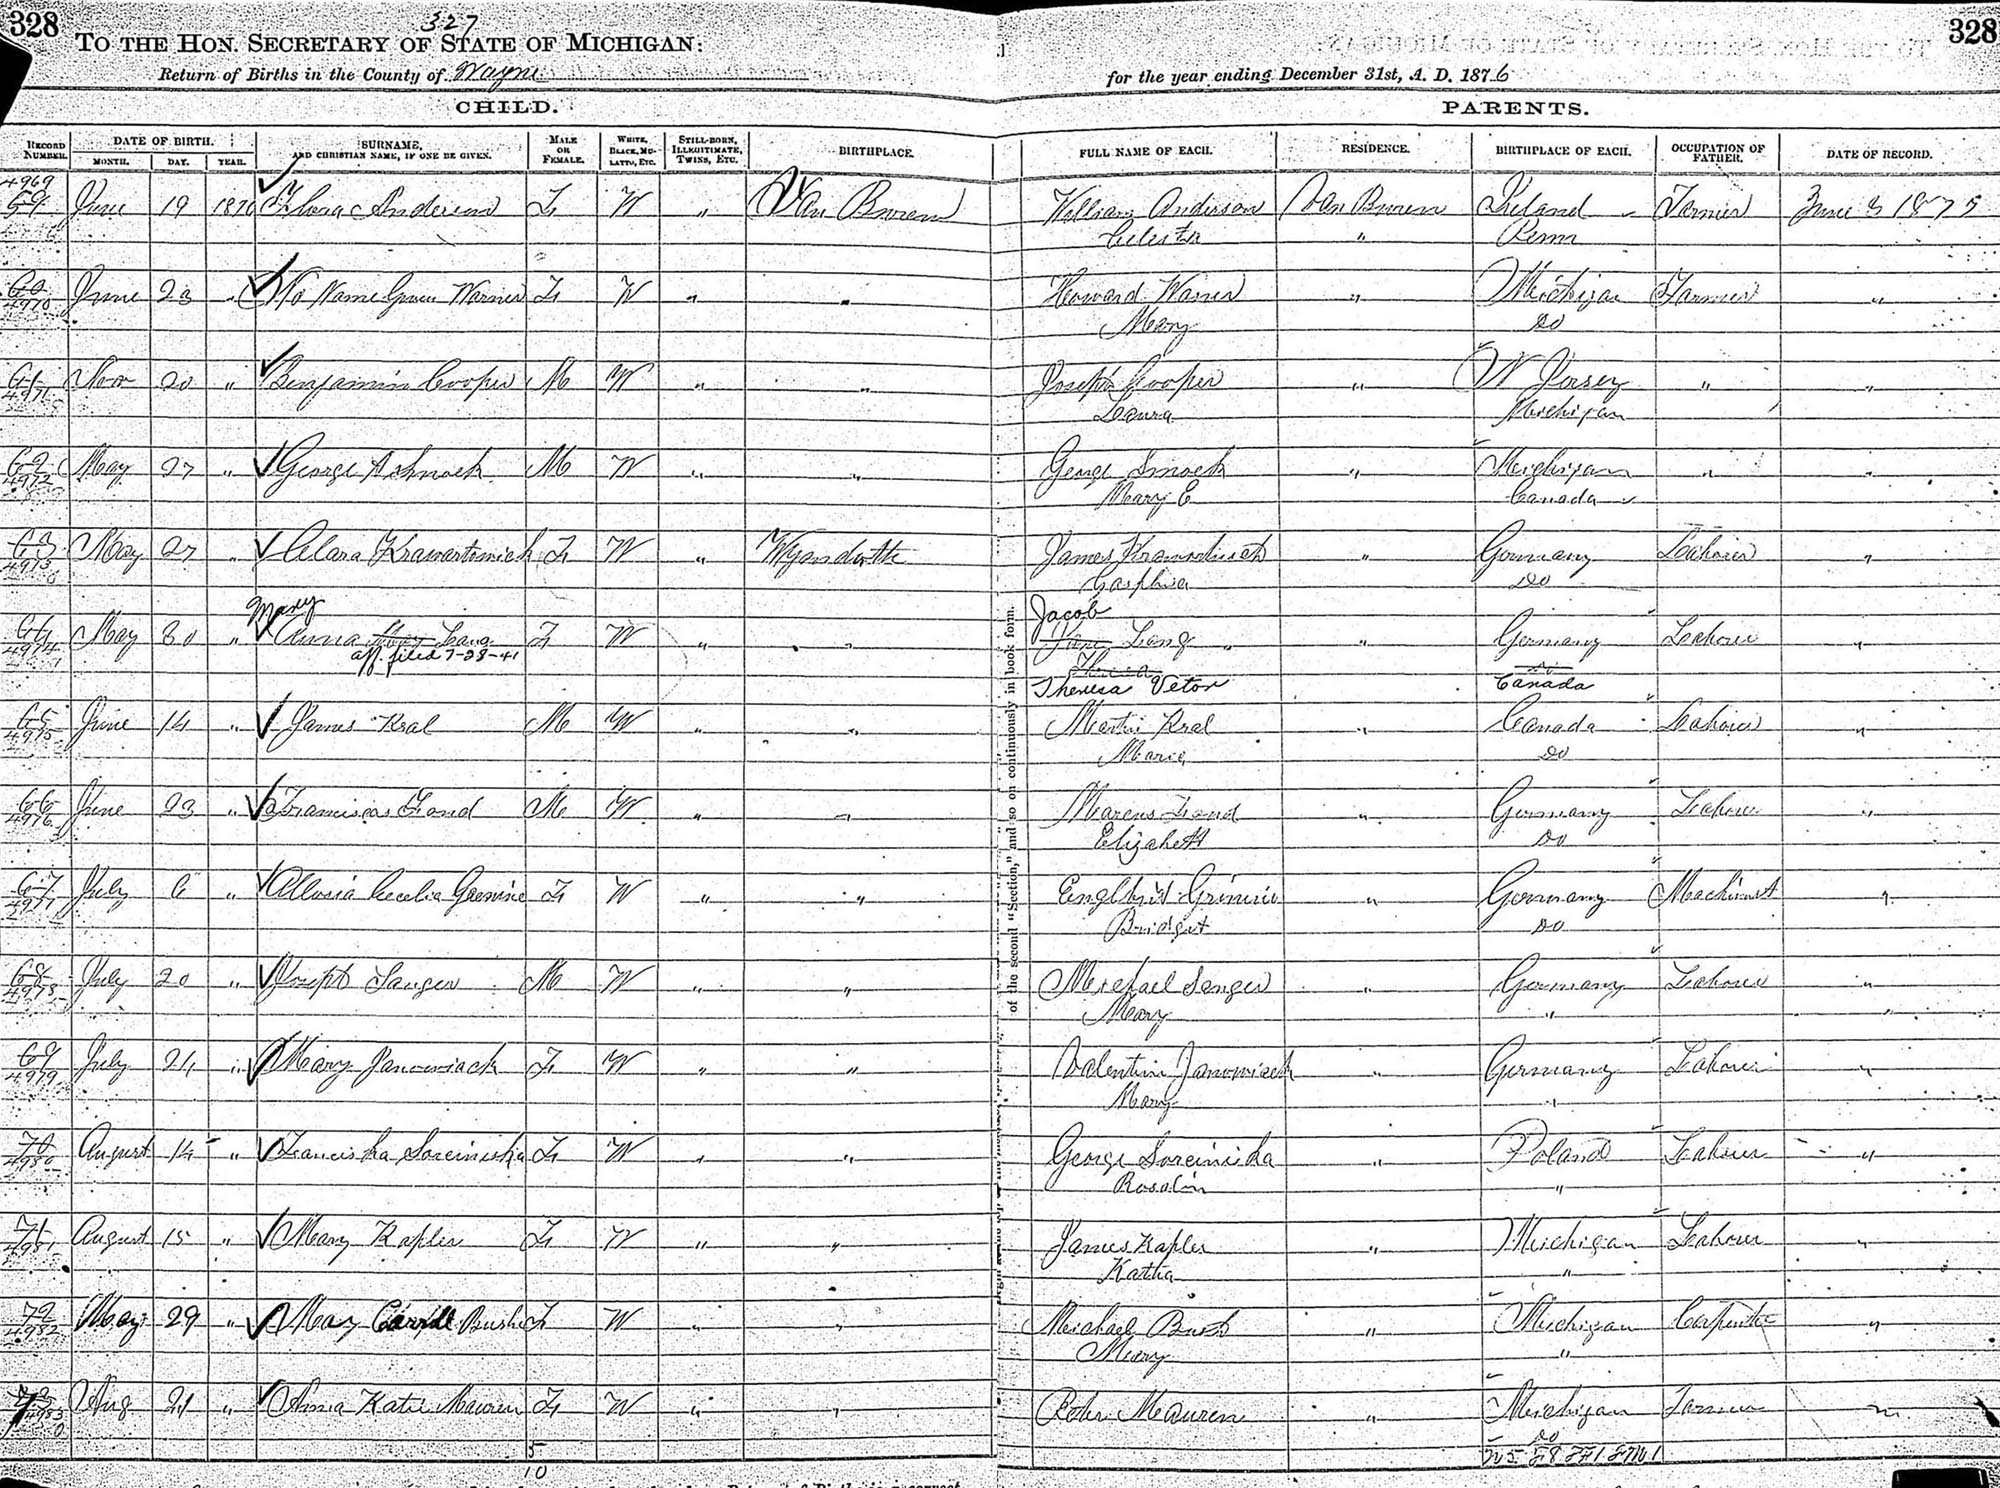 328
327
328
TO THE HON. SECRETARY OF STATE OF MICHIGAN:
Return of Births in the County of Wayne
for the year ending December 31st, A. D. 1876
CHILD.
PARENTS.
RECORD NUMBER.
DATE OF BIRTH.
MONTH. DAY. YEAR.
SURNAME, AND CHRISTIAN NAME, IF ONE BE GIVEN.
MALE OR FEMALE.
WHITE, BLACK, MULATTO, ETC.
STILL-BORN, ILLEGITIMATE, TWINS, ETC.
BIRTHPLACE.
FULL NAME OF EACH.
RESIDENCE.
BIRTHPLACE OF EACH.
OCCUPATION OF FATHER.
DATE OF RECORD.
4969
59 June 19 1876 Flora Anderson F W " Van Buren William Anderson Van Buren Ireland Farmer June 3 187
Celestia " Penn
60 June 23 " No Name Given Warner F W " " Howard Warner " Michigan Farmer "
4970 Mary Do
61 Nov 20 " Benjamin Cooper M W " " Joseph Cooper " N Jersey " "
4971 Laura Michigan
62 May 27 " George A Smock M W " " George Smock " Michigan " "
4972 Mary E Canada
63 May 27 " Clara F W " Wyandotte James " Germany Laborer "
4973 Do
Mary Jacob
64 May 30 " Anna Lang F W " " Lang " Germany Laborer "
4974 aff. filed 7-28-41
Theresa Vetor Canada
65 June 14 " James Kral M W " " Martin Kral " Canada Laborer "
4975 Marie Do
66 June 23 " Franciscas Fond M W " " Marcus Fond " Germany Laborer "
4976 Elizabeth Do
67 July 6 " Cecelia F W " " " Germany Machinist "
4977 Bridget Do
68 July 20 " Joseph Sanger M W " " Michael Sanger " Germany Laborer "
4978 Mary " "
69 July 21 " Mary Janowiack F W " " Valentin Janowiack " Germany Laborer "
4979 Mary "
70 August 14 " Franciska Sorciniska F W " " George Sorciniska " Poland Laborer "
4980 Rosalin "
71 August 15 " Mary Kapler F W " " James Kapler " Michigan Laborer "
4981 Katha "
72 May 29 " May Carrie Bush F W " " Michael Bush " Michigan Carpenter "
4982 Mary "
73 Aug 21 " Anna Katie Mauren F W " " Peter Mauren " Michigan Farmer "
4983 Do
5
10
of the second "Section," and so on continuously in book form.